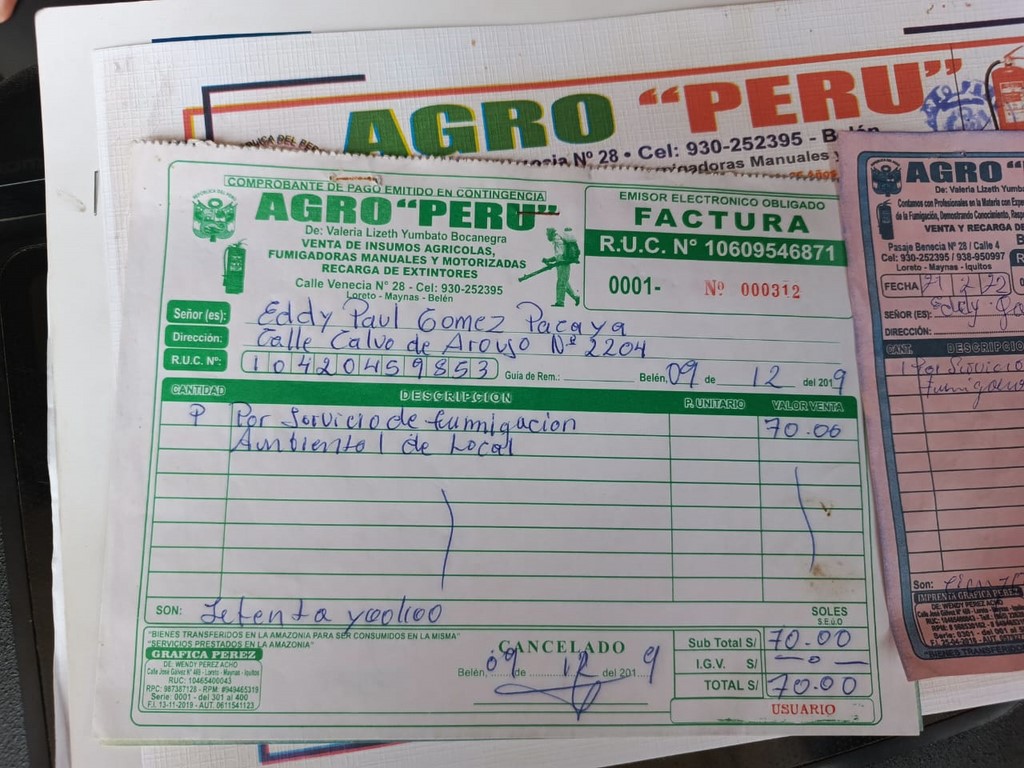 AGRO "PERU"
Nº 28 • Cel: 930-252395 - Belén
COMPROBANTE DE PAGO EMITIDO EN CONTINGENCIA
AGRO "PERU"
De: Valeria Lizeth Yumbato Bocanegra
VENTA DE INSUMOS AGRICOLAS,
FUMIGADORAS MANUALES Y MOTORIZADAS
RECARGA DE EXTINTORES
Calle Venecia N° 28 - Cel: 930-252395
Loreto - Maynas - Belén
EMISOR ELECTRONICO OBLIGADO
FACTURA
R.U.C. N° 10609546871
0001- Nº 000312
Señor (es): Eddy Paul Gomez Pacaya
Dirección: Calle Calvo de Arouso Nº 2204
R.U.C. Nº: 10420459853 Guia de Rem.: Belén, 09 de 12 del 2019
CANTIDAD DESCRIPCION P. UNITARIO VALOR VENTA
Por Servicio de fumigacion 70.00
Ambiental de Local
SON: Setenta y 00/100 SOLES
S.E.ú O
"BIENES TRANSFERIDOS EN LA AMAZONIA PARA SER CONSUMIDOS EN LA MISMA"
"SERVICIOS PRESTADOS EN LA AMAZONIA"
GRAFICA PEREZ
DE: WENDY PEREZ ACHO
Calle José Gálvez N° 469 - Loreto - Maynas - Iquitos
RUC: 10465400043
RPC: 987387128 - RPM: #949465319
Serie: 0001 - del 301 al 400
F.I. 13-11-2019 - AUT. 0611541123
CANCELADO
Belén, 09 de 12 del 2019
Sub Total S/ 70.00
I.G.V. S/ — 0 —
TOTAL S/ 70.00
USUARIO
AGRO
De: Valeria Lizeth Yumb
Contamos con Profesionales en la Materia con Expe
de la Fumigación, Demostrando Conocimiento, Resp
VENTA Y RECARGA DE
Pasaje Benecia N° 28 / Calle 4
Cel: 930-252395 / 938-950997
Loreto - Maynas - Iquitos
FECHA
SEÑOR (ES): Eddy Go
DIRECCIÓN:
CANT. DESCRIPCIO
1 Por Servicio
Son:
IMPRENTA GRAFICA PEREZ
DE: WENDY PEREZ ACHO